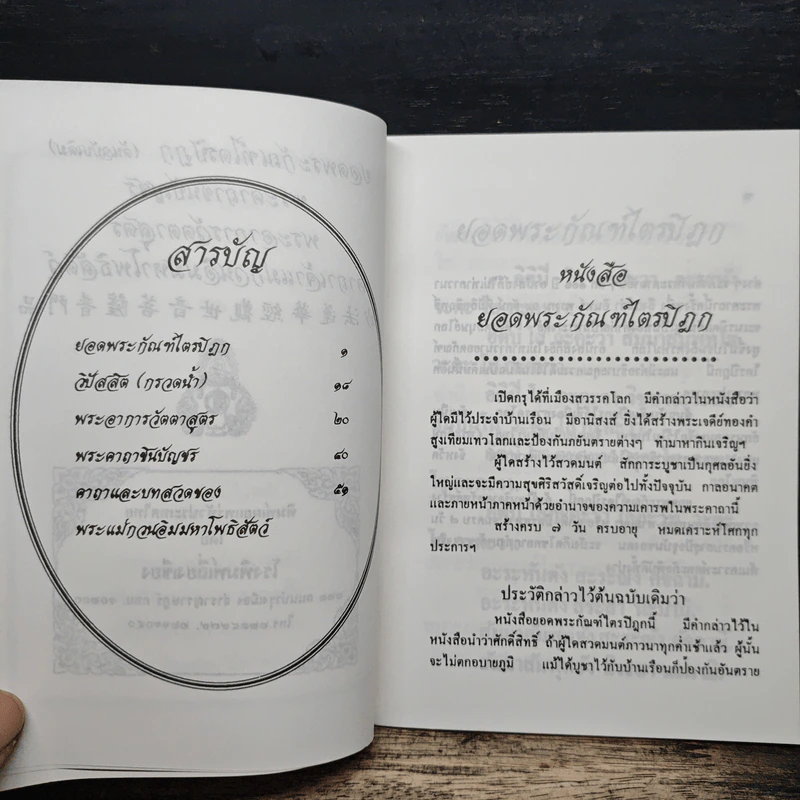 สารบัญ
ยอดพระกัณฑ์ไตรปิฎก ๑
วิปัสสิต (กรวดน้ำ) ๑๘
พระอาการวัตตาสูตร ๒๐
พระคาถาชินบัญชร ๔๐
คาถาและบทสวดของ ๕๑
พระแม่กวนอิมมหาโพธิสัตว์
หนังสือ
ยอดพระกัณฑ์ไตรปิฎก
เปิดกรุได้ที่เมืองสวรรคโลก มีคำกล่าวในหนังสือว่า
ผู้ใดมีไว้ประจำบ้านเรือน มีอานิสงส์ ยิ่งได้สร้างพระเจดีย์ทองคำ
สูงเทียมเทวโลกและป้องกันภยันตรายต่างๆ ทำมาหากินเจริญฯ
ผู้ใดสร้างไว้สวดมนต์ สักการะบูชาเป็นกุศลอันยิ่ง
ใหญ่และจะมีความสุขศิริสวัสดิ์เจริญต่อไปทั้งปัจจุบัน กาลอนาคต
และภายหน้าภาคหน้าด้วยอำนาจของความเคารพในพระคาถานี้
สร้างครบ ๗ วัน ครบอายุ หมดเคราะห์โศกทุก
ประการฯ
ประวัติกล่าวไว้ต้นฉบับเดิมว่า
หนังสือยอดพระกัณฑ์ไตรปิฎกนี้ มีคำกล่าวไว้ใน
หนังสือนำว่าศักดิ์สิทธิ์ ถ้าผู้ใดสวดมนต์ภาวนาทุกค่ำเช้าแล้ว ผู้นั้น
จะไม่ตกอบายภูมิ แม้ได้บูชาไว้กับบ้านเรือนก็ป้องกันอันตราย